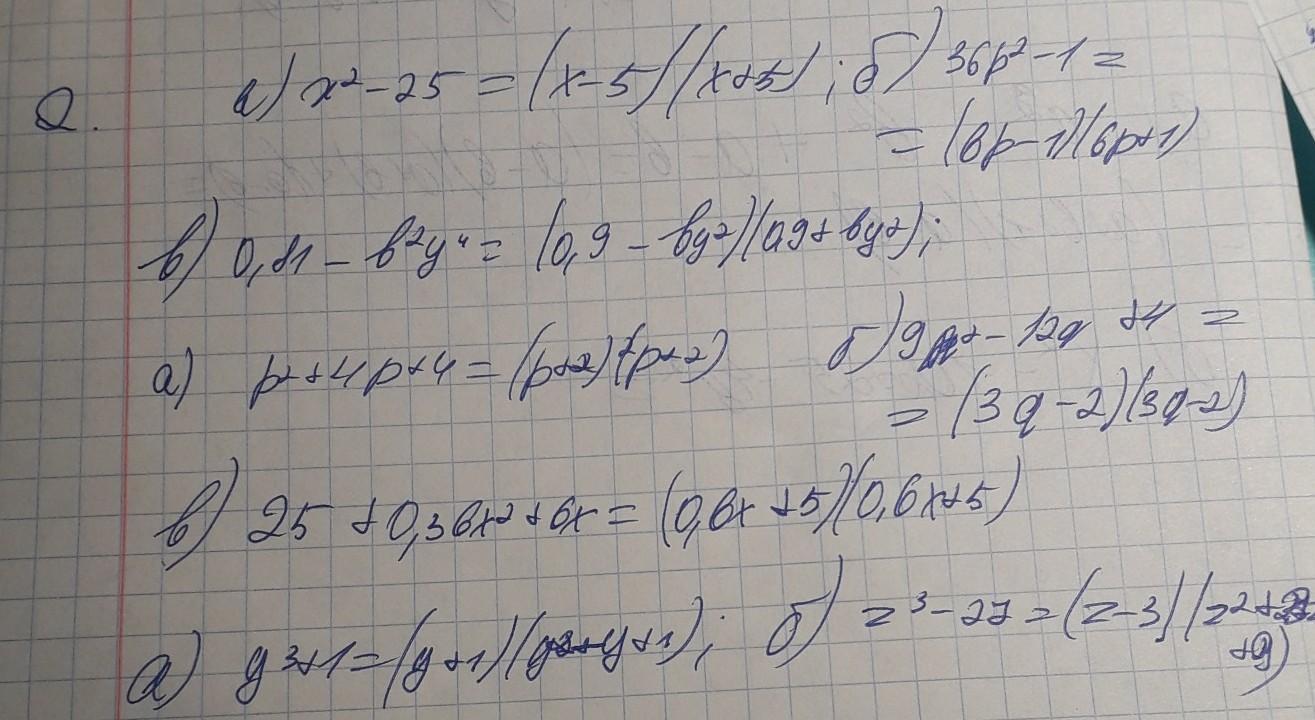 2. а) x² - 25 = (x-5)(x+5) ; б) 36p² - 1 =
= (6p-1)(6p+1)
в) 0,81 - b²y⁴ = (0,9 - by²)(0,9 + by²);
а) p² + 4p + 4 = (p+2)(p+2) б) 9q² - 12q + 4 =
= (3q - 2)(3q-2)
в) 25 + 0,36x² + 6x = (0,6x + 5)(0,6x+5)
а) y³+1 = (y+1)(y²+y+1); б) z³ - 27 = (z-3)(z²+
+9)